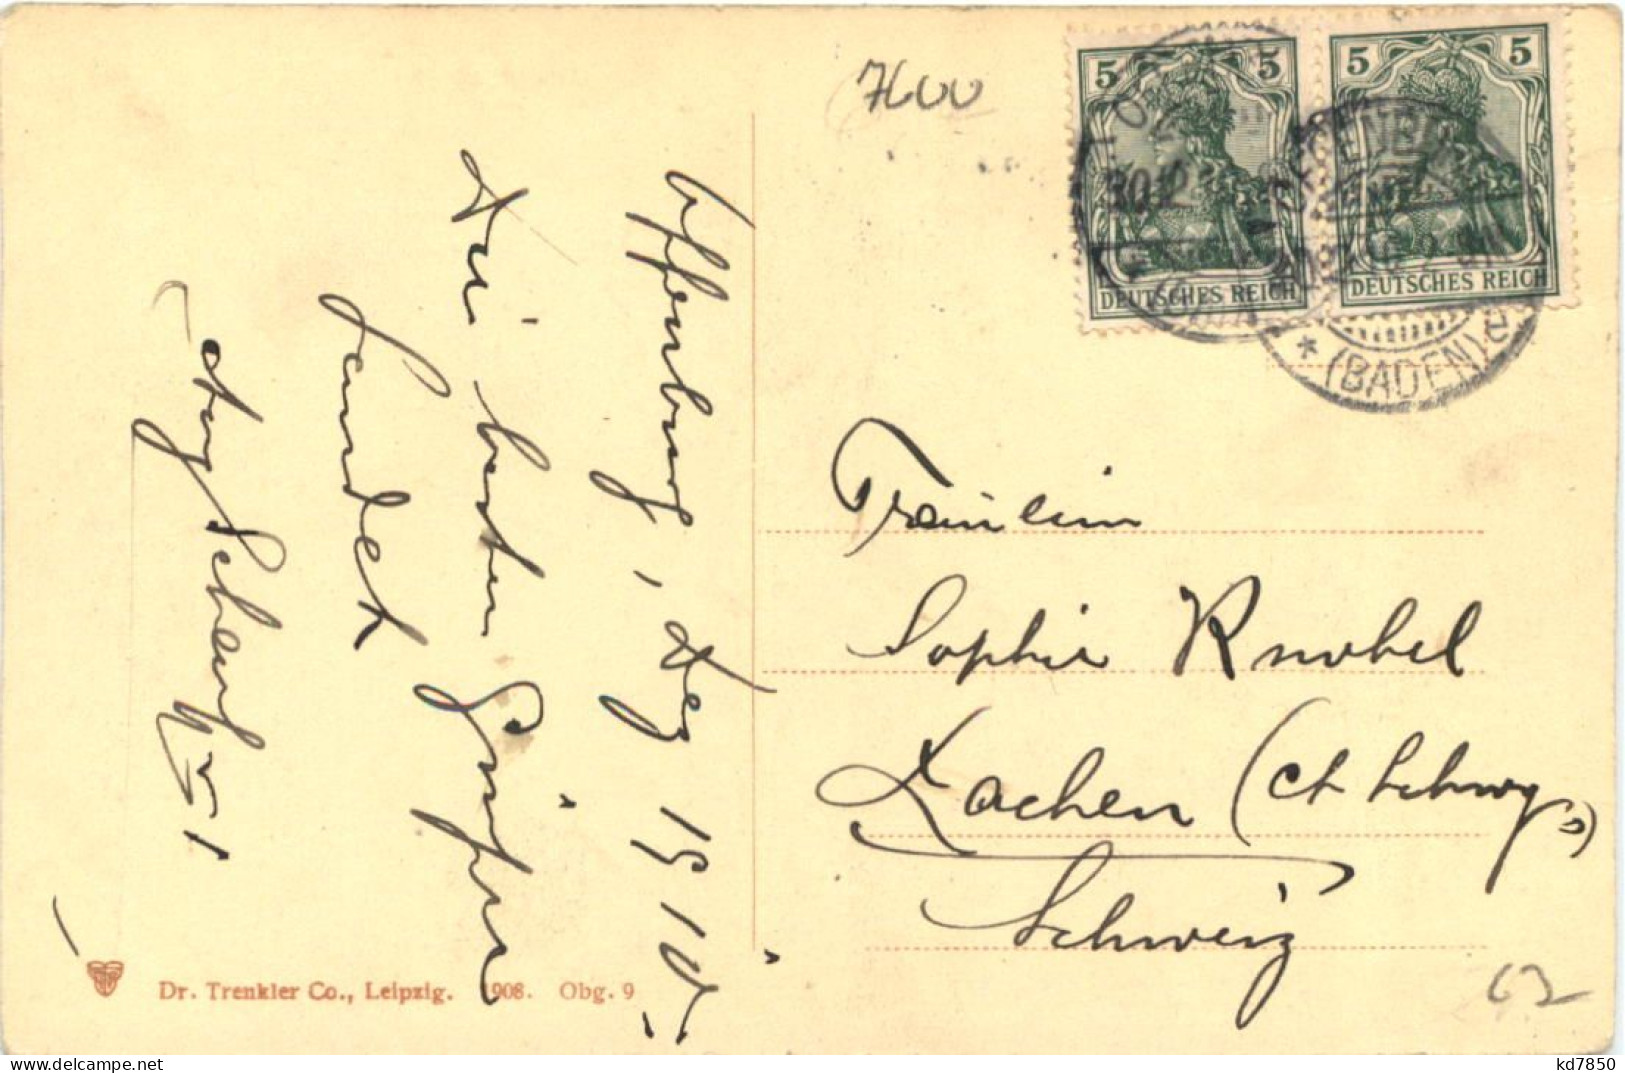 7600
5 5
DEUTSCHES REICH
5 5
DEUTSCHES REICH
OFFENBURG
* (BADEN)
Offenburg, Dez 1910.
Die besten Grüße
sendet
Aug Schenk
Fräulein
Sophie Knobel
Lachen (Ct. Schwyz)
Schweiz
Dr. Trenkler Co., Leipzig. 1908. Obg. 9
62
kd7850